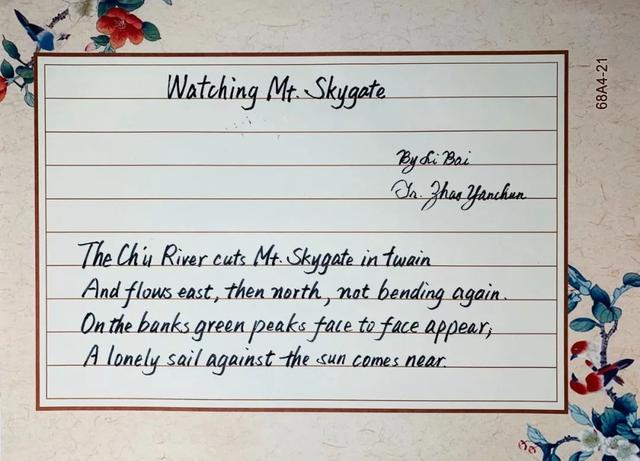 Watching Mt. Skygate
By Li Bai
Tr. Zhao Yanchun
The Ch'u River cuts Mt. Skygate in twain
And flows east, then north, not bending again.
On the banks green peaks face to face appear;
A lonely sail against the sun comes near.
68A4-21